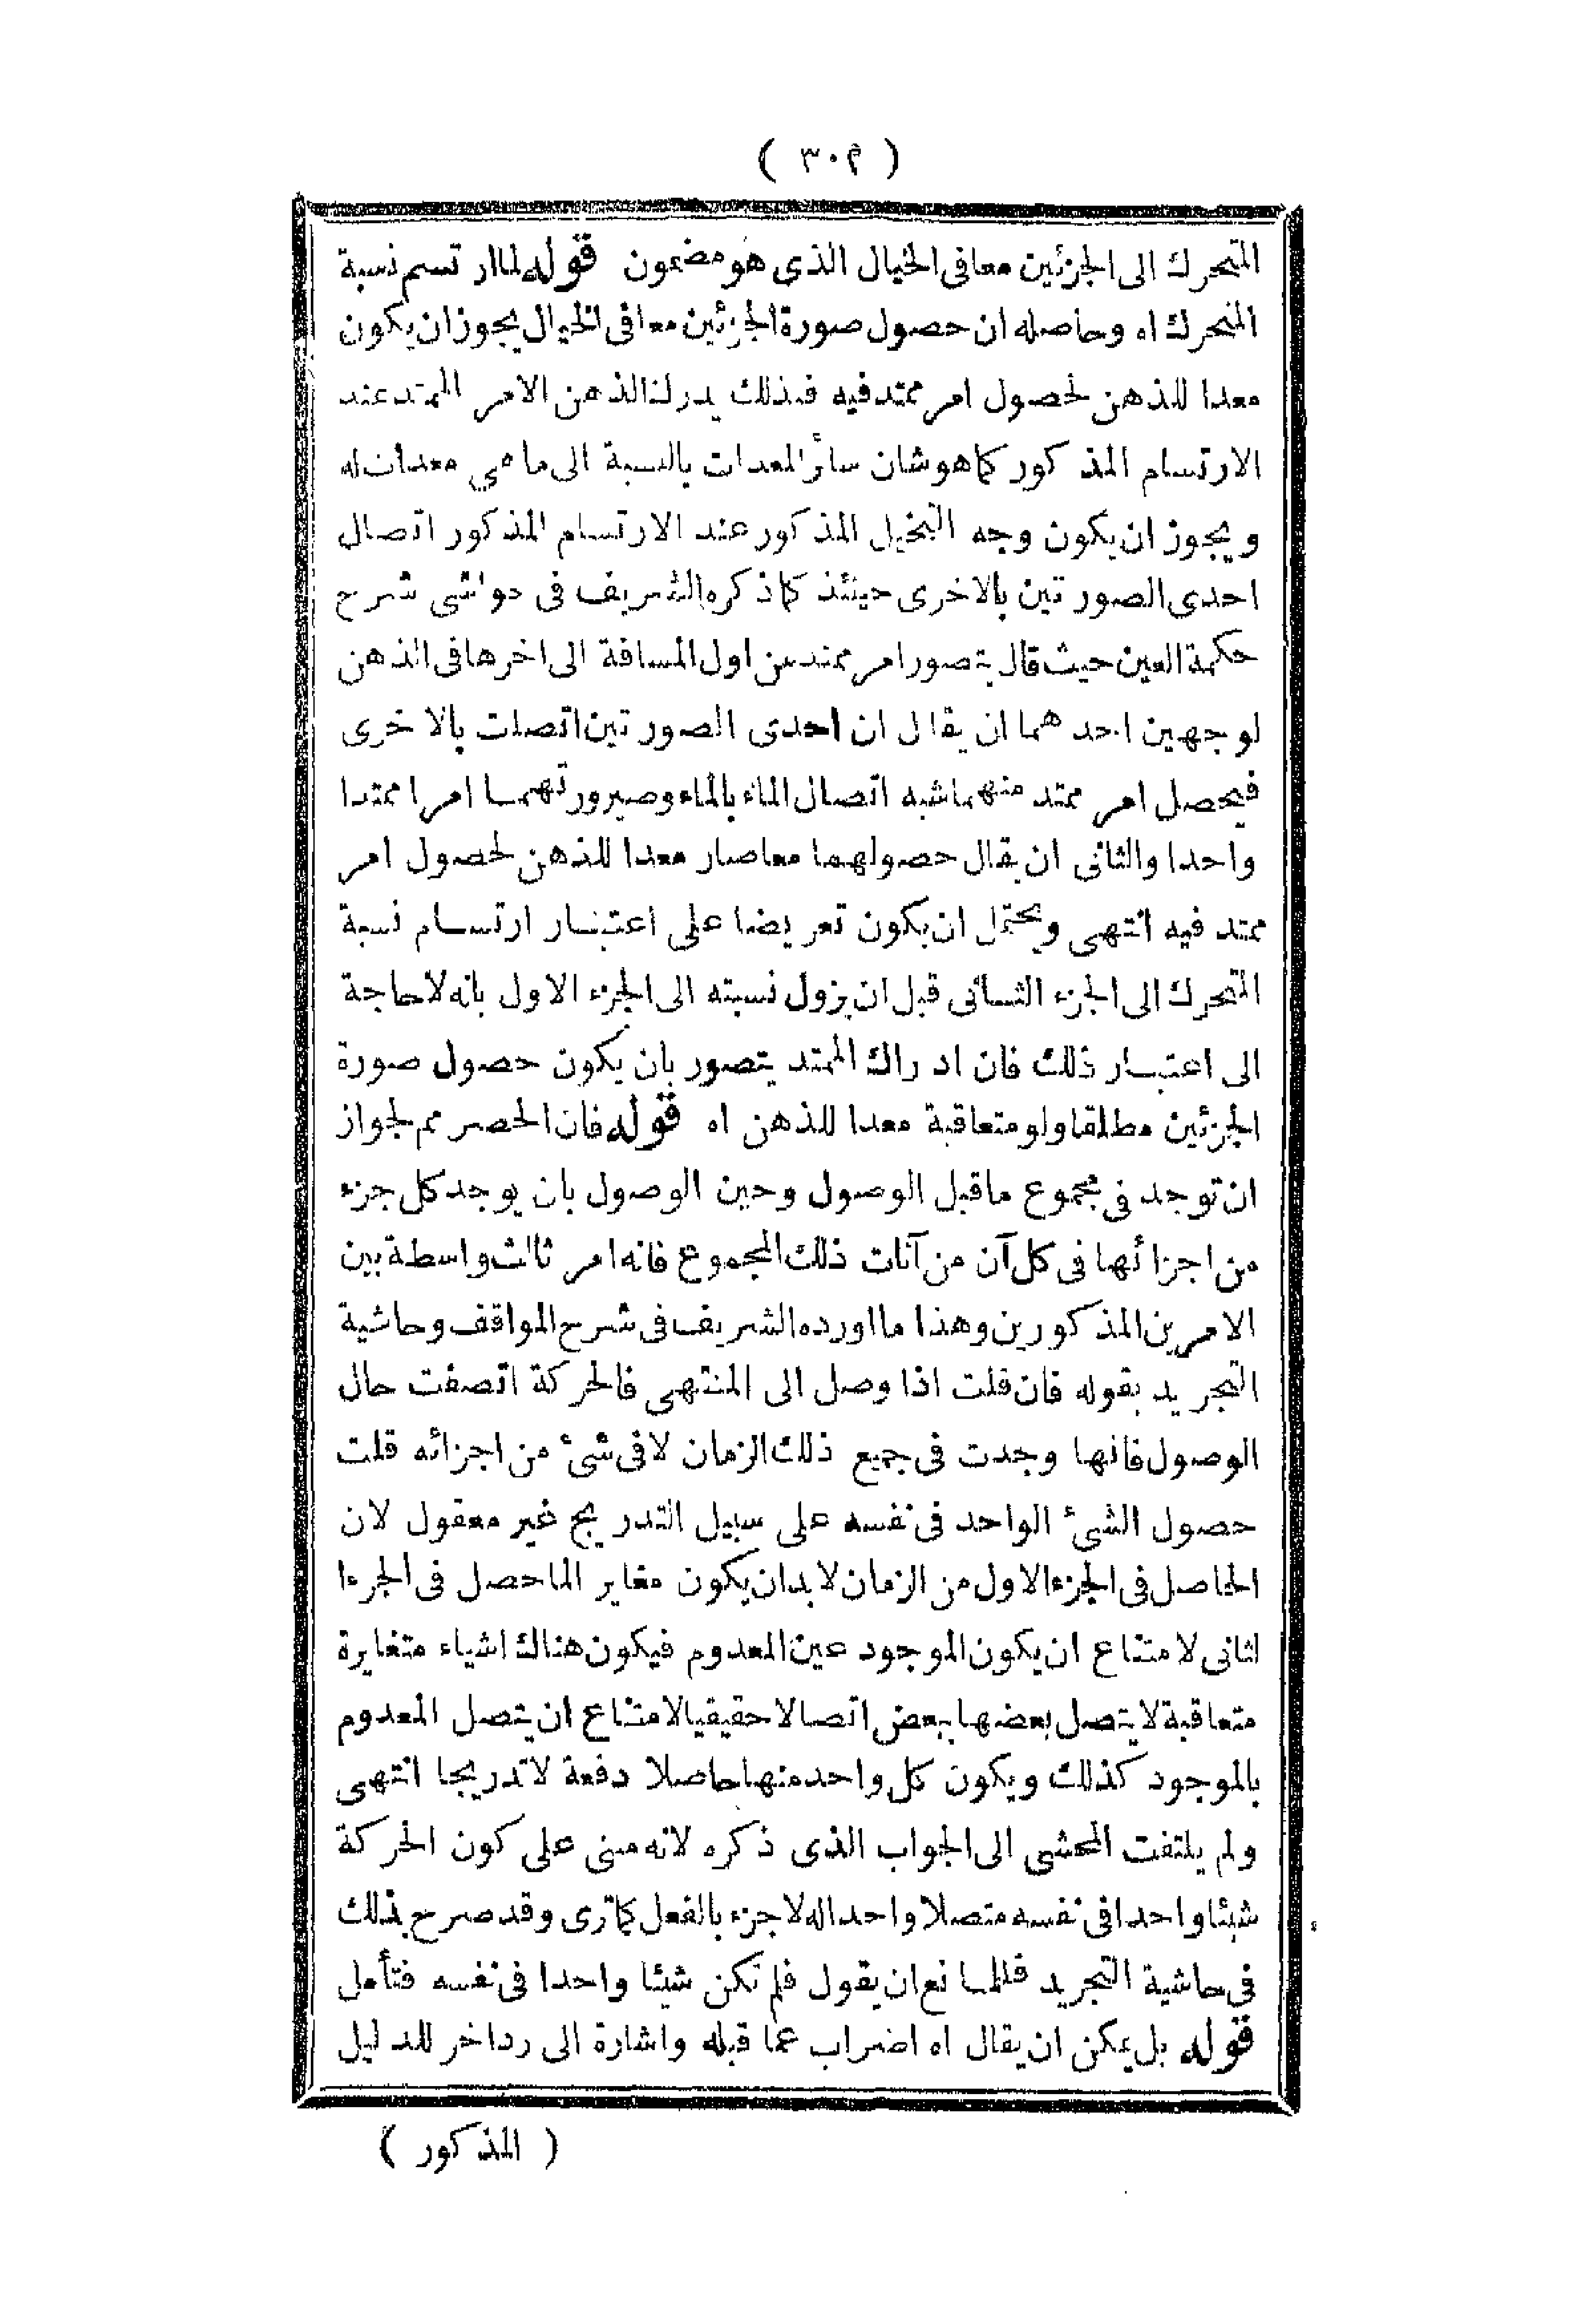 ( ٣٠٩ )
المتحرك الى الجزئين معا فى الخيال الذى هو مضمون قوله لما ارتسم نسبة
المتحرك اه وحاصله ان حصول صورة الجزئين معا فى الخيال يجوز ان يكون
معدا للذهن لحصول امر ممتد فيه فبذلك يدرك الذهن الامر الممتد عند
الارتسام المذكور كما هو شان سائر المعدات بالنسبة الى ما هى معدات له
ويجوز ان يكون وجه التخيل المذكور عند الارتسام المذكور اتصال
احدى الصورتين بالاخرى حينئذ كما ذكره الشريف فى حواشى شرح
حكمة العين حيث قال يتصور امر ممتد من اول المسافة الى اخرها فى الذهن
لوجهين احدهما ان يقال ان احدى الصورتين اتصلت بالاخرى
فيحصل امر ممتد منهما شبه اتصال الماء بالماء وصيرورتهمسا امرا ممتدا
واحدا والثانى ان يقال حصولهما معا صار معدا للذهن لحصول امر
ممتد فيه انتهى ويحتمل ان يكون تعريضا على اعتبار ارتسام نسبة
المتحرك الى الجزء الثانى قبل ان يزول نسبته الى الجزء الاول بانه لا حاجة
الى اعتبار ذلك فان ادراك الممتد يتصور بان يكون حصول صورة
الجزئين مطلقا ولو متعاقبة معدا للذهن اه قوله فان الحصر مم لجواز
ان توجد فى مجموع ما قبل الوصول وحين الوصول بان يوجد كل جزء
من اجزائها فى كل آن من آنات ذلك المجموع فانه امر ثالث واسطة بين
الامرين المذكورين وهذا ما اورده الشريف فى شرح المواقف وحاشية
التجريد بقوله فان قلت اذا وصل الى المنتهى فالحركة اتصفت حال
الوصول فانها وجدت فى جميع ذلك الزمان لا فى شئ من اجزائه قلت
حصول الشئ الواحد فى نفسه على سبيل التدريج غير معقول لان
الحاصل فى الجزء الاول من الزمان لا بد ان يكون مغاير الما حصل فى الجزءا
لثانى لامتناع ان يكون الموجود عين المعدوم فيكون هناك اشياء متغايرة
متعاقبة لا يتصل بعضها ببعض اتصالا حقيقيا لامتناع ان يتصل المعدوم
بالموجود كذلك ويكون كل واحد منها حاصلا دفعة لا تدريجا انتهى
ولم يلتفت المحشى الى الجواب الذى ذكره لانه مبنى على كون الحركة
شيئا واحدا فى نفسه متصلا واحدا له لا جزء بالفعل كما ترى وقد صرح بذلك
فى حاشية التجريد فللمانع ان يقول فلم تكن شيئا واحدا فى نفسه فتأمل
قوله بل يمكن ان يقال اه اضراب عما قبله واشارة الى رد اخر للدليل
( المذكور )